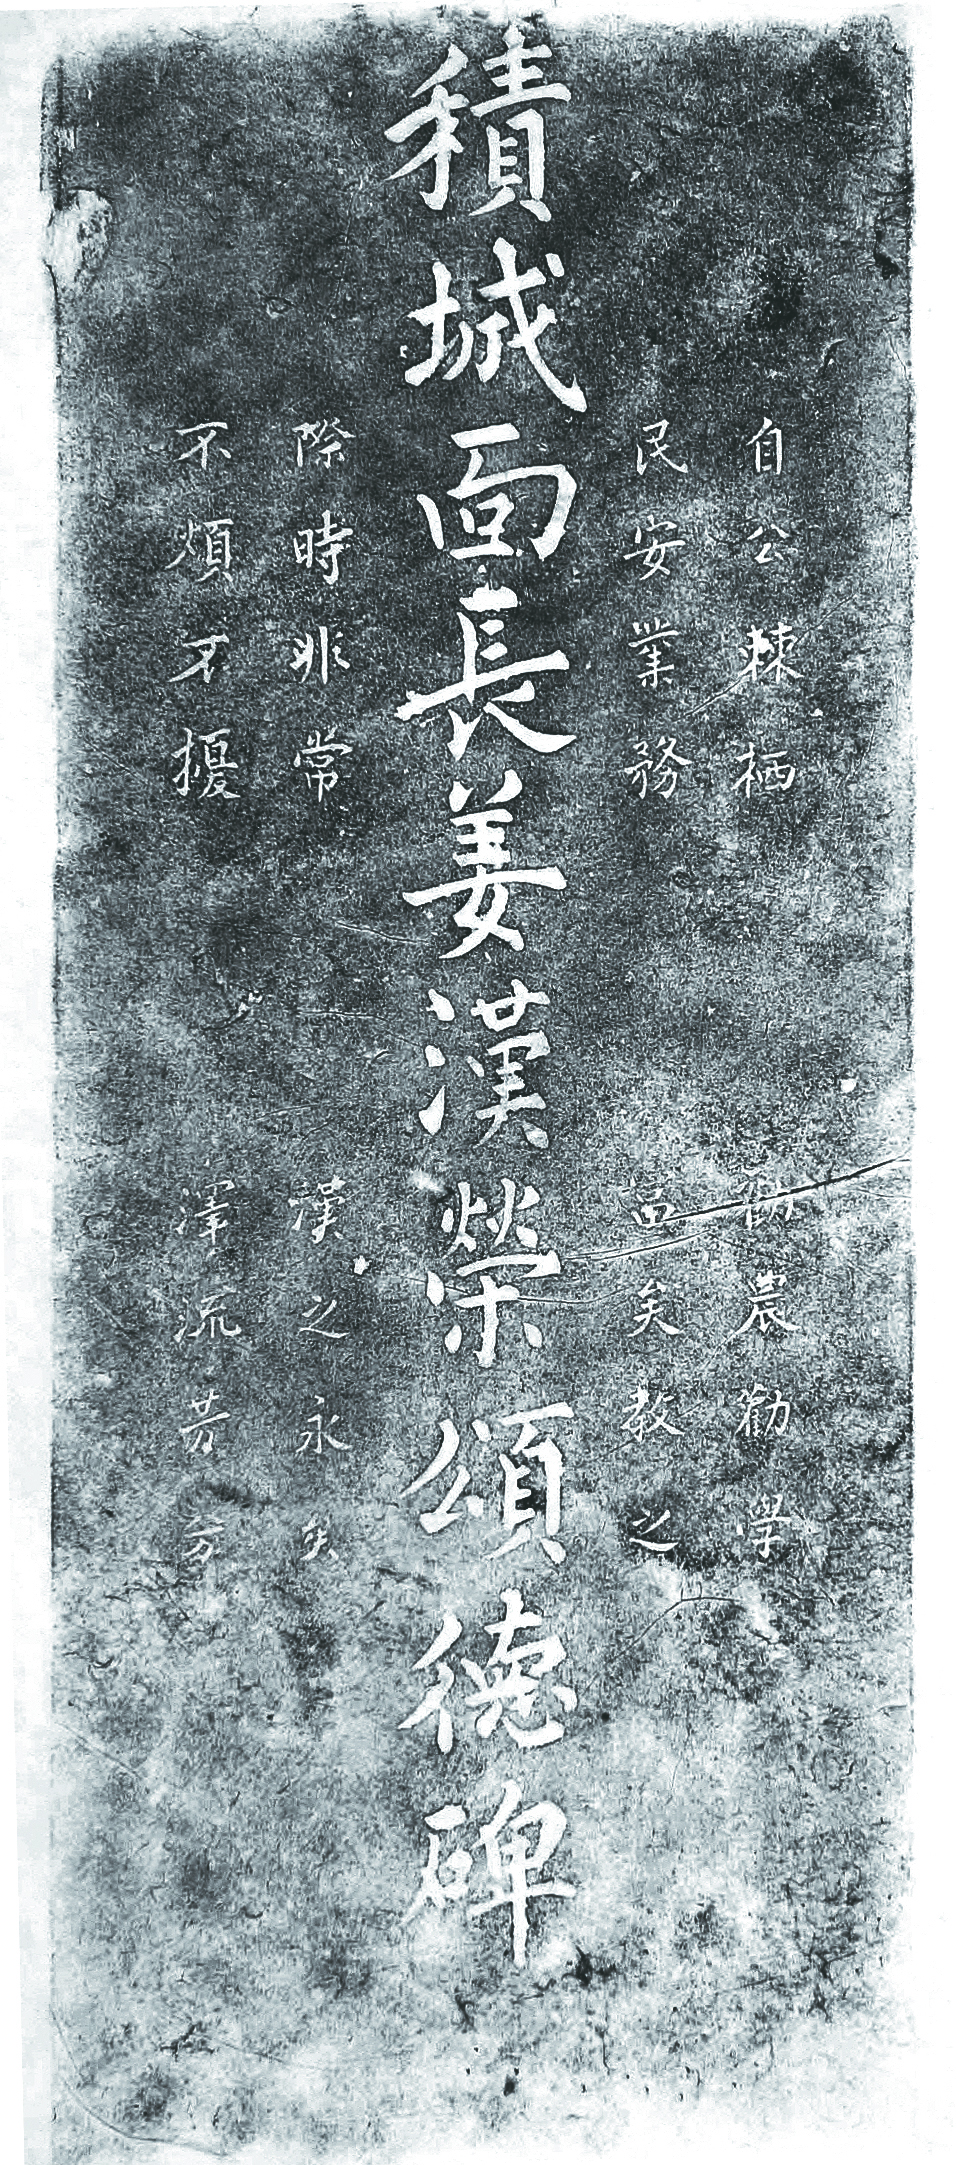 自公棘栖 勸農勸學
民安業務 富矣教之
積城面長姜漢榮頌德碑
際時非常 漢之永矣
不煩不擾 澤流芳方